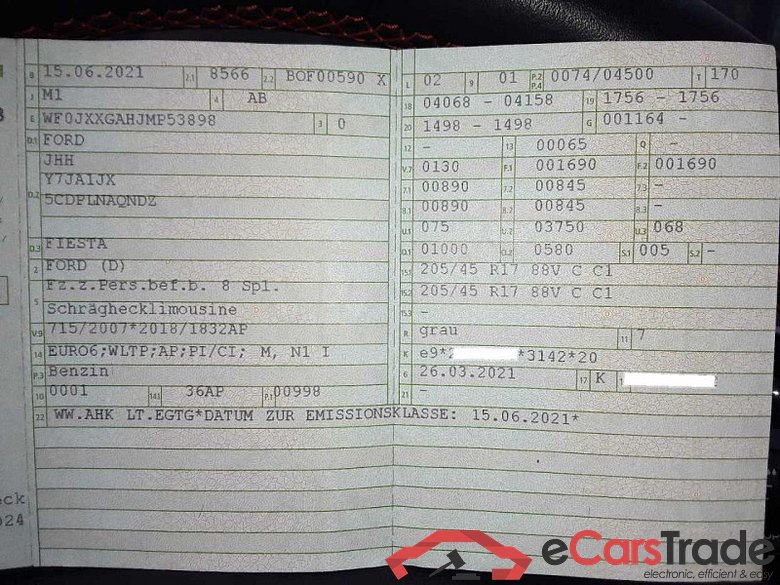 B 15.06.2021 2.1 8566 2.2 BOF00590 X
J M1 4 AB
E WF0JXXGAHJMP53898 3 0
D.1 FORD
JHH
D.2 Y7JA1JX
5CDPLNAQNDZ
D.3 FIESTA
2 FORD (D)
5 Fz.z.Pers.bef.b. 8 Spl.
Schräghecklimousine
V.9 715/2007*2018/1832AP
14 EURO6;WLTP;AP;PI/CI; M, N1 I
P.3 Benzin
10 0001 14.1 36AP P.1 00998
22 WW.AHK LT.EGTG*DATUM ZUR EMISSIONSKLASSE: 15.06.2021*
L 02 9 01 P.2 P.4 0074/04500 T 170
18 04068 - 04158 19 1756 - 1756
20 1498 - 1498 G 001164 -
12 - 13 00065 Q -
V.7 0130 F.1 001690 F.2 001690
7.1 00890 7.2 00845 7.3 -
8.1 00890 8.2 00845 8.3 -
U.1 075 U.2 03750 U.3 068
O.1 01000 O.2 0580 S.1 005 S.2 -
15.1 205/45 R17 88V C C1
15.2 205/45 R17 88V C C1
15.3 -
R grau 11 7
K e9*2 *3142*20
6 26.03.2021 17 K
21 -
eck
024
eCarsTrade
electronic, efficient &